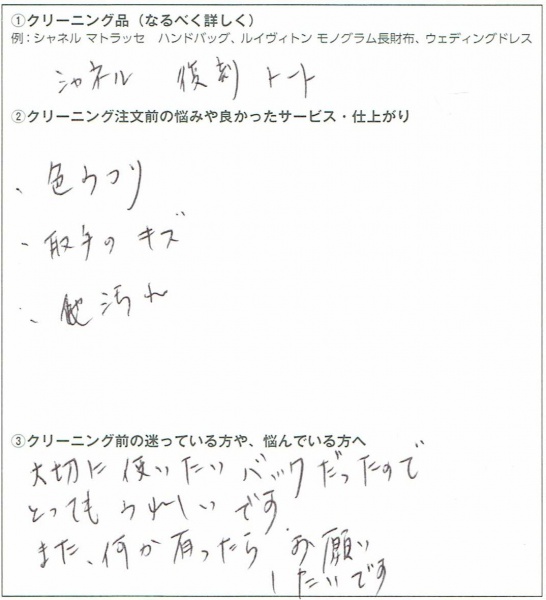 ①クリーニング品（なるべく詳しく）
例：シャネル マトラッセ　ハンドバッグ、ルイヴィトン モノグラム長財布、ウェディングドレス
シャネル　復刻　トート
②クリーニング注文前の悩みや良かったサービス・仕上がり
・色うつり
・取手のキズ
・他汚れ
③クリーニング前の迷っている方や、悩んでいる方へ
大切に使いたいバックだったので
とってもうれしいです
また、何か有ったらお願い
したいです